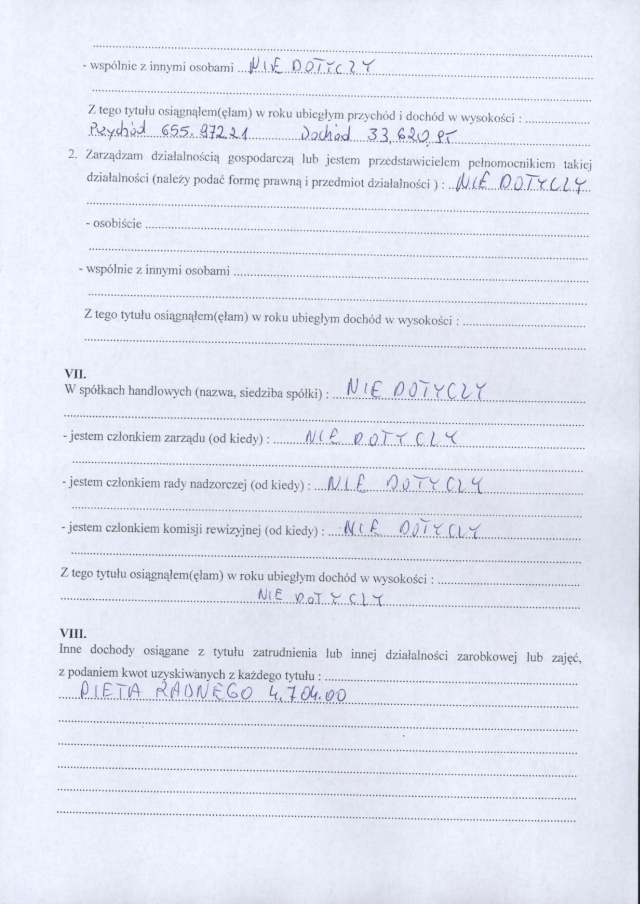 - wspólnie z innymi osobami ... NIE DOTYCZY
Z tego tytułu osiągnąłem(ęłam) w roku ubiegłym przychód i dochód w wysokości : ...
Przychód 655.972 21 Dochód 33.620,95
2. Zarządzam działalnością gospodarczą lub jestem przedstawicielem pełnomocnikiem takiej
działalności (należy podać formę prawną i przedmiot działalności ) : ... NIE DOTYCZY
- osobiście ...
- wspólnie z innymi osobami ...
Z tego tytułu osiągnąłem(ęłam) w roku ubiegłym dochód w wysokości : ...
VII.
W spółkach handlowych (nazwa, siedziba spółki) : ... NIE DOTYCZY
- jestem członkiem zarządu (od kiedy) : ... NIE DOTYCZY
- jestem członkiem rady nadzorczej (od kiedy) : ... NIE DOTYCZY
- jestem członkiem komisji rewizyjnej (od kiedy) : ... NIE DOTYCZY
Z tego tytułu osiągnąłem(ęłam) w roku ubiegłym dochód w wysokości : ...
NIE DOTYCZY
VIII.
Inne dochody osiągane z tytułu zatrudnienia lub innej działalności zarobkowej lub zajęć,
z podaniem kwot uzyskiwanych z każdego tytułu : ...
DIETA RADNEGO 4.704.00